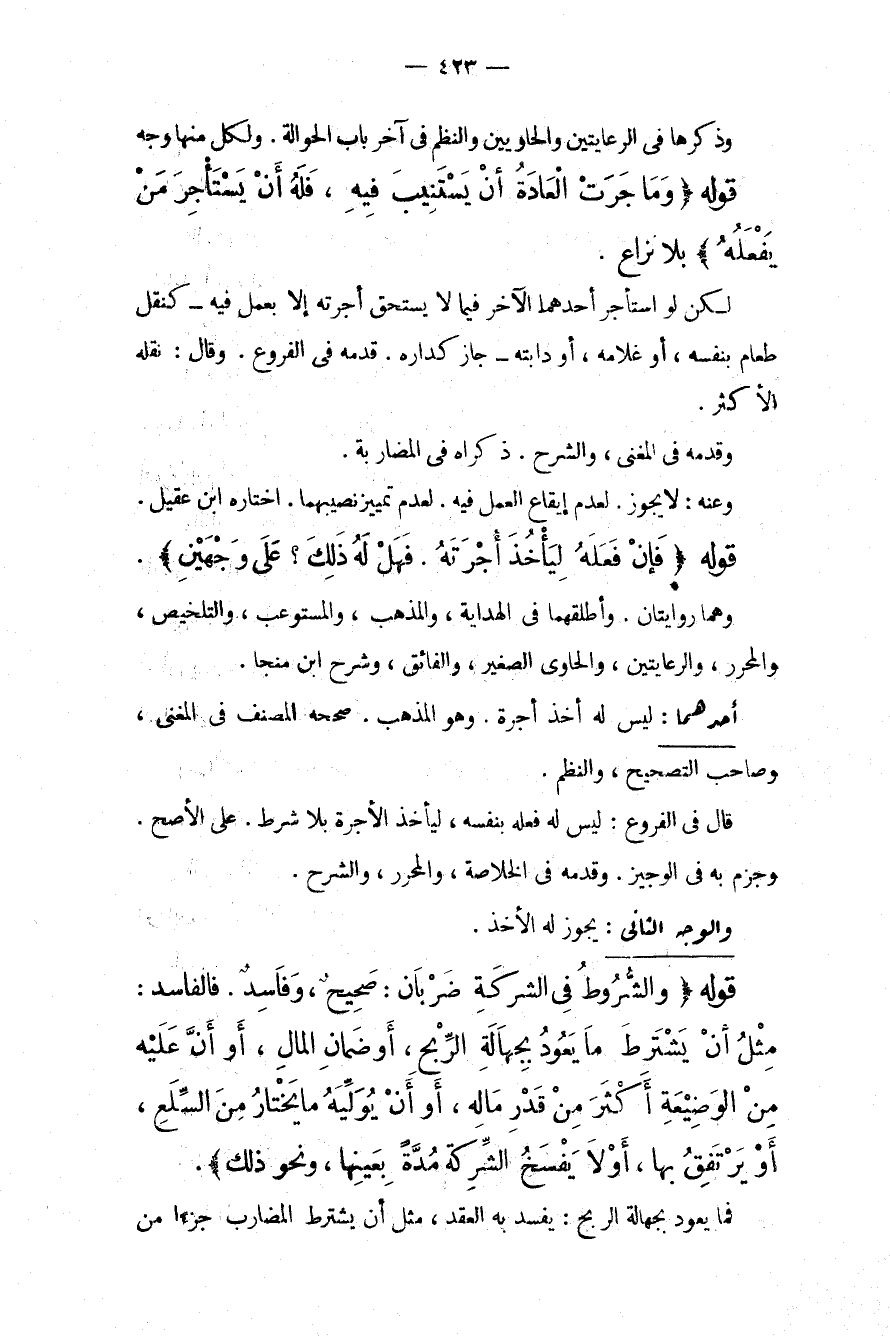 — ٤٢٣ —
وذكرها فى الرعايتين والحاويين والنظم فى آخر باب الحوالة . ولكل منها وجه
قوله ﴿ وَمَا جَرَتْ الْعَادَةُ أنْ يَسْتَنِيبَ فِيهِ ، فَلَهُ أَنْ يَسْتَأْجِرَ مَنْ
يَفْعَلُهُ ﴾ بلا نزاع .
لـكن لو استأجر أحدهما الآخر فيما لا يستحق أجرته إلا بعمل فيه ــ كنقل
طعام بنفسه ، أو غلامه ، أو دابته ــ جاز كداره . قدمه فى الفروع . وقال : نقله
الأكثر .
وقدمه فى المغنى ، والشرح . ذكراه فى المضاربة .
وعنه : لايجوز . لعدم إيقاع العمل فيه . لعدم تمييز نصيبهما . اختاره ابن عقيل .
قوله ﴿ فَإِنْ فَعَلَهُ لِيَأْخُذَ أُجْرَتَهُ . فَهَلْ لَهُ ذَلِكَ ؟ عَلَى وَجْهَيْنِ ﴾ .
وهما روايتان . وأطلقهما فى الهداية ، والمذهب ، والمستوعب ، والتلخيص ،
والمحرر ، والرعايتين ، والحاوى الصغير ، والفائق ، وشرح ابن منجا .
أحدهما : ليس له أخذ أجرة . وهو المذهب . صححه المصنف فى المغنى ،
وصاحب التصحيح ، والنظم .
قال فى الفروع : ليس له فعله بنفسه ، ليأخذ الأجرة بلا شرط . على الأصح .
وجزم به فى الوجيز . وقدمه فى الخلاصة ، والمحرر ، والشرح .
والوجه الثانى : يجوز له الأخذ .
قوله ﴿ والشُّرُوطُ فِى الشركَةِ ضَرْبَان : صَحِيحٌ ، وَفَاسِدٌ . فالفاسد :
مِثْلُ أنْ يَشْتَرِطَ مَا يَعُودُ بِجِهَالَةِ الرِّبْحِ ، أَو ضَمانِ المالِ ، أَو أَنَّ عَلَيْه
مِنْ الوَضِيْعَةِ أَكْثَرَ مِنْ قَدْرِ مَالِهِ ، أَو أَنْ يُوَلِّيَهُ مايَخْتَارُ مِنَ السِّلَعِ ،
أَوْ يَرْتَفِقُ بها ، أَوْلَا يَفْسَخُ الشِّركَةَ مُدَّةً بِعَينِها ، ونحو ذلك ﴾ .
فما يعود بجهالة الربح : يفسد به العقد ، مثل أن يشترط المضارب جزءا من